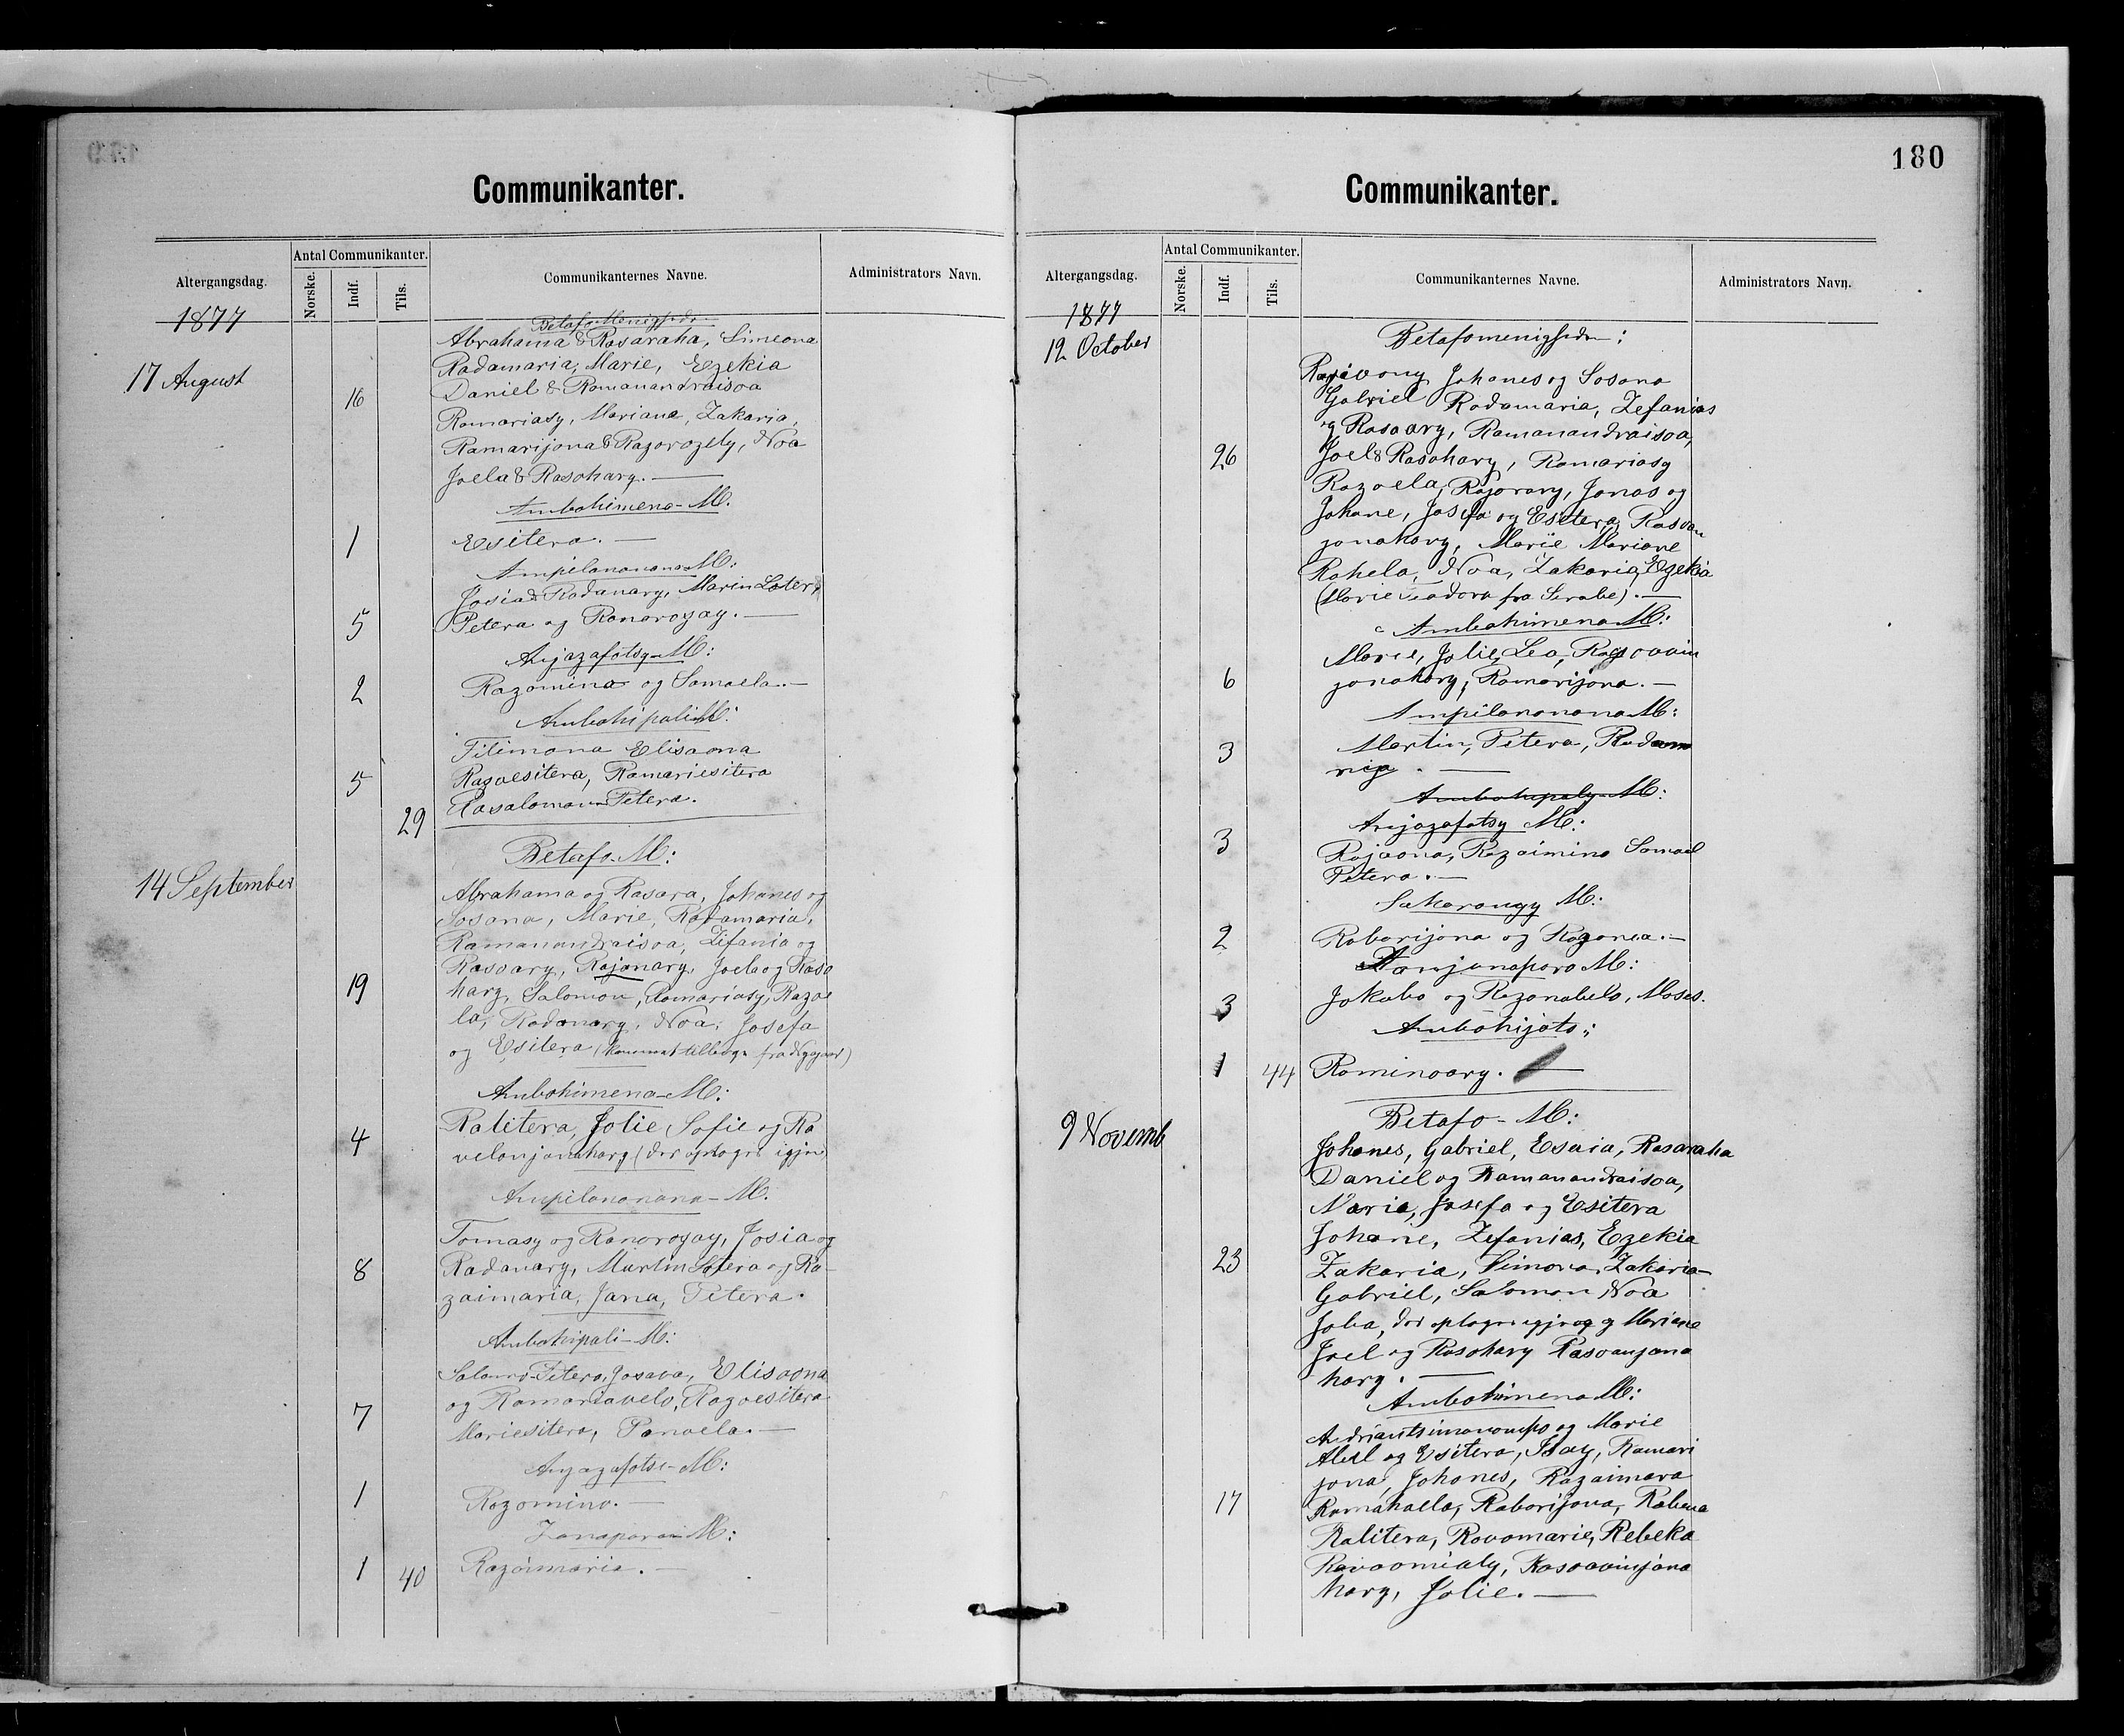 Communikanter.
Altergangsdag.
Antal Communikanter.
Norske.
Indf.
Tils.
Communikanternes Navne.
Administrators Navn.
1877
Betafo Menighed
17 August
Abrahama & Rasaraha, Simeona
Radamaria, Marie, Ezekia
16
Daniel & Ramanandraisoa
Ramariasy, Mariane, Zakaria,
Ramarijona & Razorozely, Noa
Joela & Rasohary. —
Ambohimena - M.
1
Esitera. —
Ampilanonana M:
Josia & Radanary, Martin Loter &
5
Petera og Ranorozay. —
Anjazafotsy - M:
2
Razomina og Samoela. —
Ambohipali M:
Filimona Elisaona
5
Razoesitera, Ramariesitera
29
Rasalomon Petera.
Betafo - M:
14 September
Abrahama og Rasara, Johanes og
Sosana, Marie, Radamaria,
Ramanandraisoa, Zifania og
Rasoary, Rajanary, Joela og Raso
19
hary, Salomon, Ramariasy, Razoe
la, Radanary, Noa, Josefa
og Esitera
Ambohimena - M:
4
Ralitera, Jolie Sofie og Ra
velonjanahary (der optoges igjen)
Ampilanonana - M.
Tomasy og Ranorozay, Josia og
8
Radanary, Martin Lotera og Ra-
zaimaria, Jana, Petera.
Ambohipali - M:
Salomo - Petera, Josava, Elisaona
og Ramariavelo, Razoesitera
7
Mariesitera, Panoela. —
Anjazafotsi - M:
1
Razomino. —
Zanaporo M:
1
40
Razaimaria. —
180
Communikanter.
Altergangsdag.
Antal Communikanter.
Norske.
Indf.
Tils.
Communikanternes Navne.
Administrators Navn.
1877
12 October
Betafomenigheden:
Johanes og Sosana
Gabriel Radamaria, Zefanias
og Rasoary, Ramanandraisoa,
26
Joel & Rasohary, Ramariasy
Razoela, Rajorary, Jonas og
Johane, Josefa og Esitera Rasoan
janahary, Marie Mariane
Rahela, Noa, Zakaria, Ezekia
(Marie fra Sirabe). —
Ambohimena M:
Marie, Jolie, Lea,
6
janahary, Ramarijona. —
Ampilanonana M:
3
Martin, Petera, Radam
Ambohipaly M:
Anjazafotsy M:
3
Rajaona, Razaimino Samael
Petera. —
Sakarangy M:
2
Raborijona og Razonea. —
Tanjonaporo M:
3
Jokabo og Razanabelo, Moses.
Ambohijato:
1
44
Raminoary. —
Betafo - M:
9 Novemb
Johanes, Gabriel, Esaia, Rasaraha
Daniel og Ramanandraisoa,
Maria, Josefa og Esitera
Johane, Zefanias, Ezekia
23
Zakaria, Simona, Zakaria
Gabriel, Salomon Noa
Joba, der optoges igjen og Mariane
Joel og Rasohary Rasoanjana
hary. —
Ambohimena M:
Andriantsimanompo og Marie
Abel og Esitera, Isay, Ramari
jona, Johanes, Razaimara
17
Ramahaela, Raborijona, Rabena
Ralitera, Ravomarie, Rebeka
Ravaomialy, Rasoavinjana
hary, Jolie. —